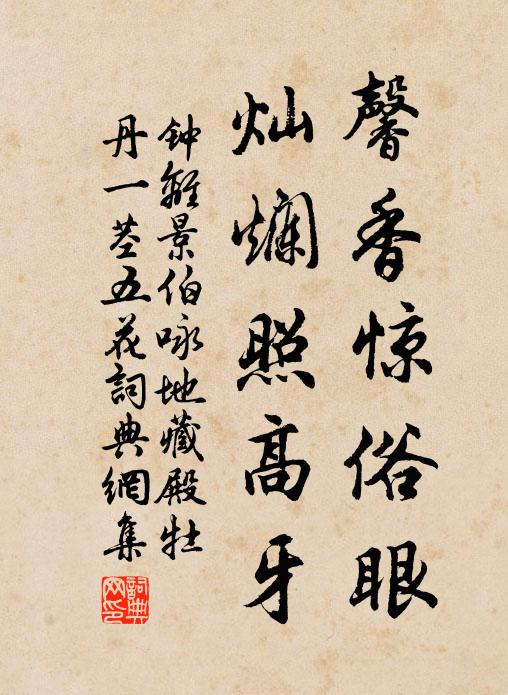 馨香惊俗眼
灿爛照高牙
钟離景伯咏地藏殿牡
丹一茎五花詞典網集
詞典网印